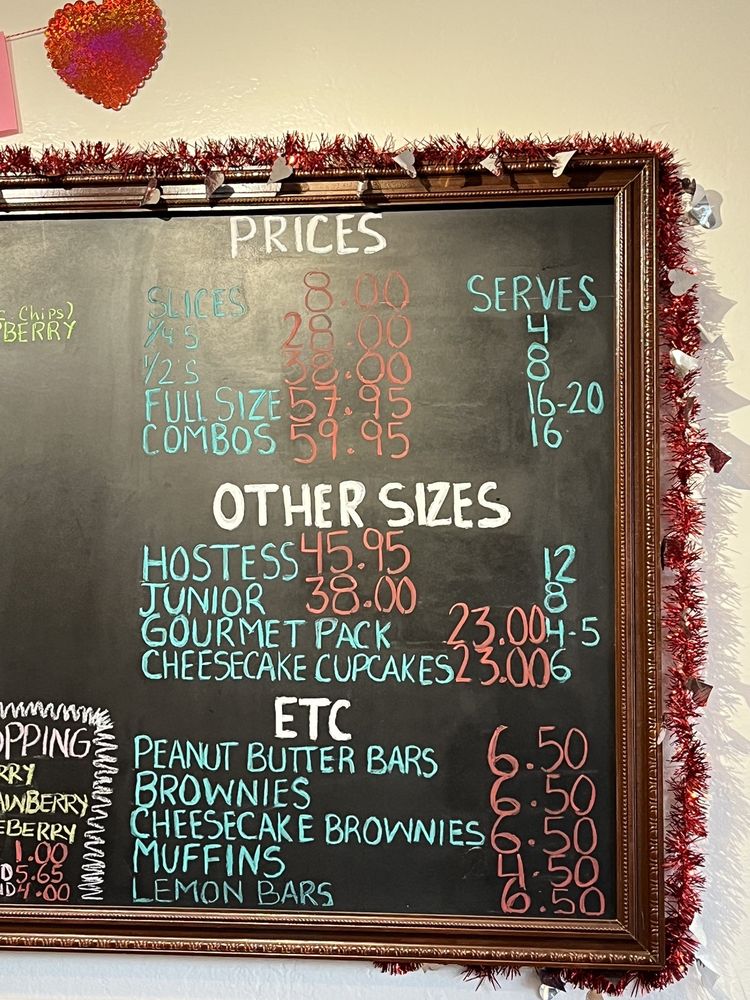 PRICES
SLICES 8.00 SERVES
1/4'S 28.00 4
1/2'S 38.00 8
FULL SIZE 57.95 16-20
COMBOS 59.95 16
OTHER SIZES
HOSTESS 45.95 12
JUNIOR 38.00 8
GOURMET PACK 23.00 4-5
CHEESECAKE CUPCAKES 23.00 6
ETC
PEANUT BUTTER BARS 6.50
BROWNIES 6.50
CHEESECAKE BROWNIES 6.50
MUFFINS 4.50
LEMON BARS 6.50
C. Chips)
BERRY
OPPING
RRY
AWBERRY
EBERRY
1.00
D 5.65
ND 4.00